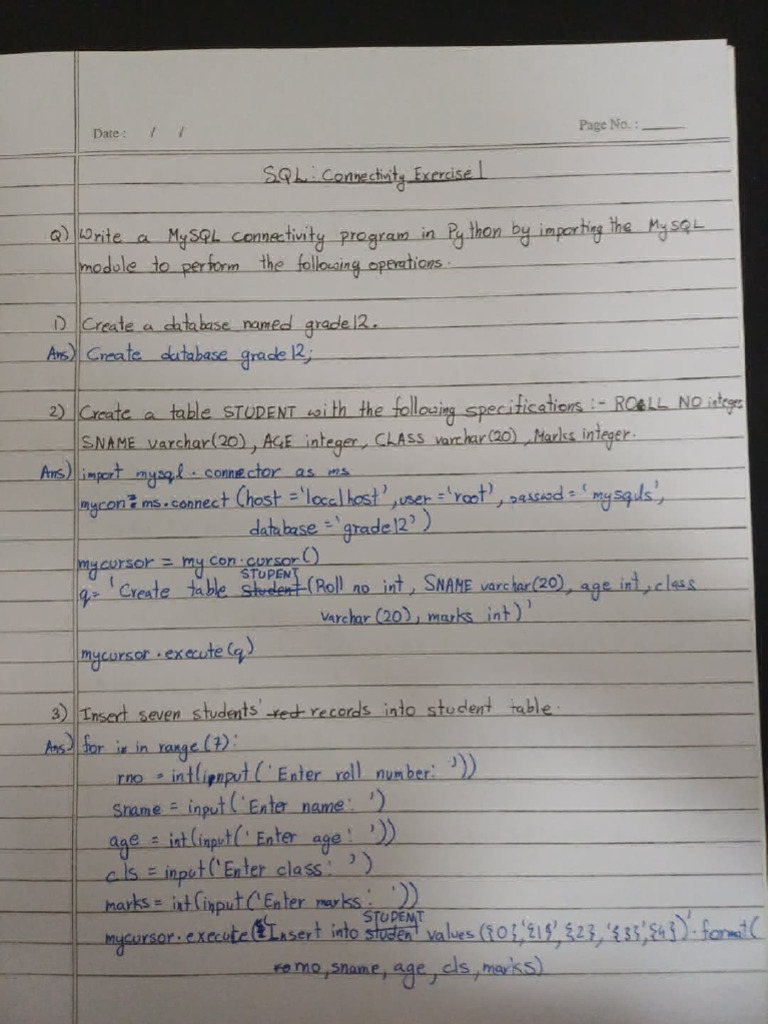 Date : / /
Page No. :
SQL : Connectivity Exercise 1
Q) Write a MySQL connectivity program in Python by importing the MySQL
module to perform the following operations.
1) Create a database named grade12.
Ans) Create database grade12;
2) Create a table STUDENT with the following specifications :- ROLL NO integer
SNAME varchar(20), AGE integer, CLASS varchar(20), Marks integer.
Ans) import mysql.connector as ms
mycon = ms.connect (host = 'localhost', user = 'root', passwd = 'mysqlis',
database = 'grade12')
mycursor = mycon.cursor()
q = 'Create table STUDENT (Roll no int, SNAME varchar(20), age int, class
varchar(20), marks int)'
mycursor.execute(q)
3) Insert seven students' records into student table.
Ans) for i in range(7):
rno = int(input('Enter roll number: '))
sname = input('Enter name: ')
age = int(input('Enter age: '))
cls = input('Enter class: ')
marks = int(input('Enter marks: '))
mycursor.execute('Insert into STUDENT values({0},'{1}',{2},'{3}',{4})'.format(
rno, sname, age, cls, marks)